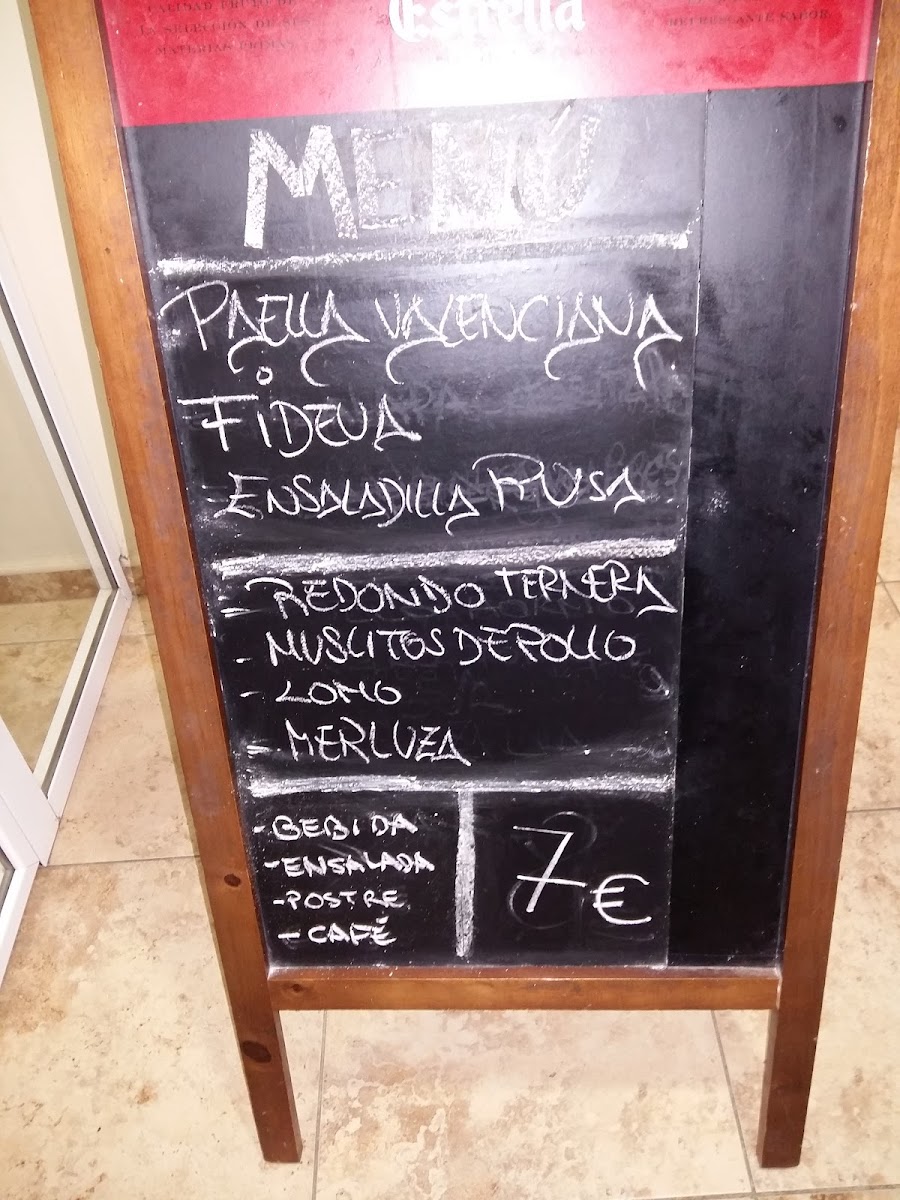 CALIDAD FRUTO DE
LA SELECCIÓN DE SUS
MATERIAS PRIMAS
Estrella
REFRESCANTE SABOR.
MENÚ
PAELLA VALENCIANA
FIDEUA
- ENSALADILLA RUSA
- REDONDO TERNERA
- MUSLITOS DE POLLO
- LOMO
- MERLUZA
- BEBIDA
- ENSALADA
- POSTRE
- CAFÉ
7€